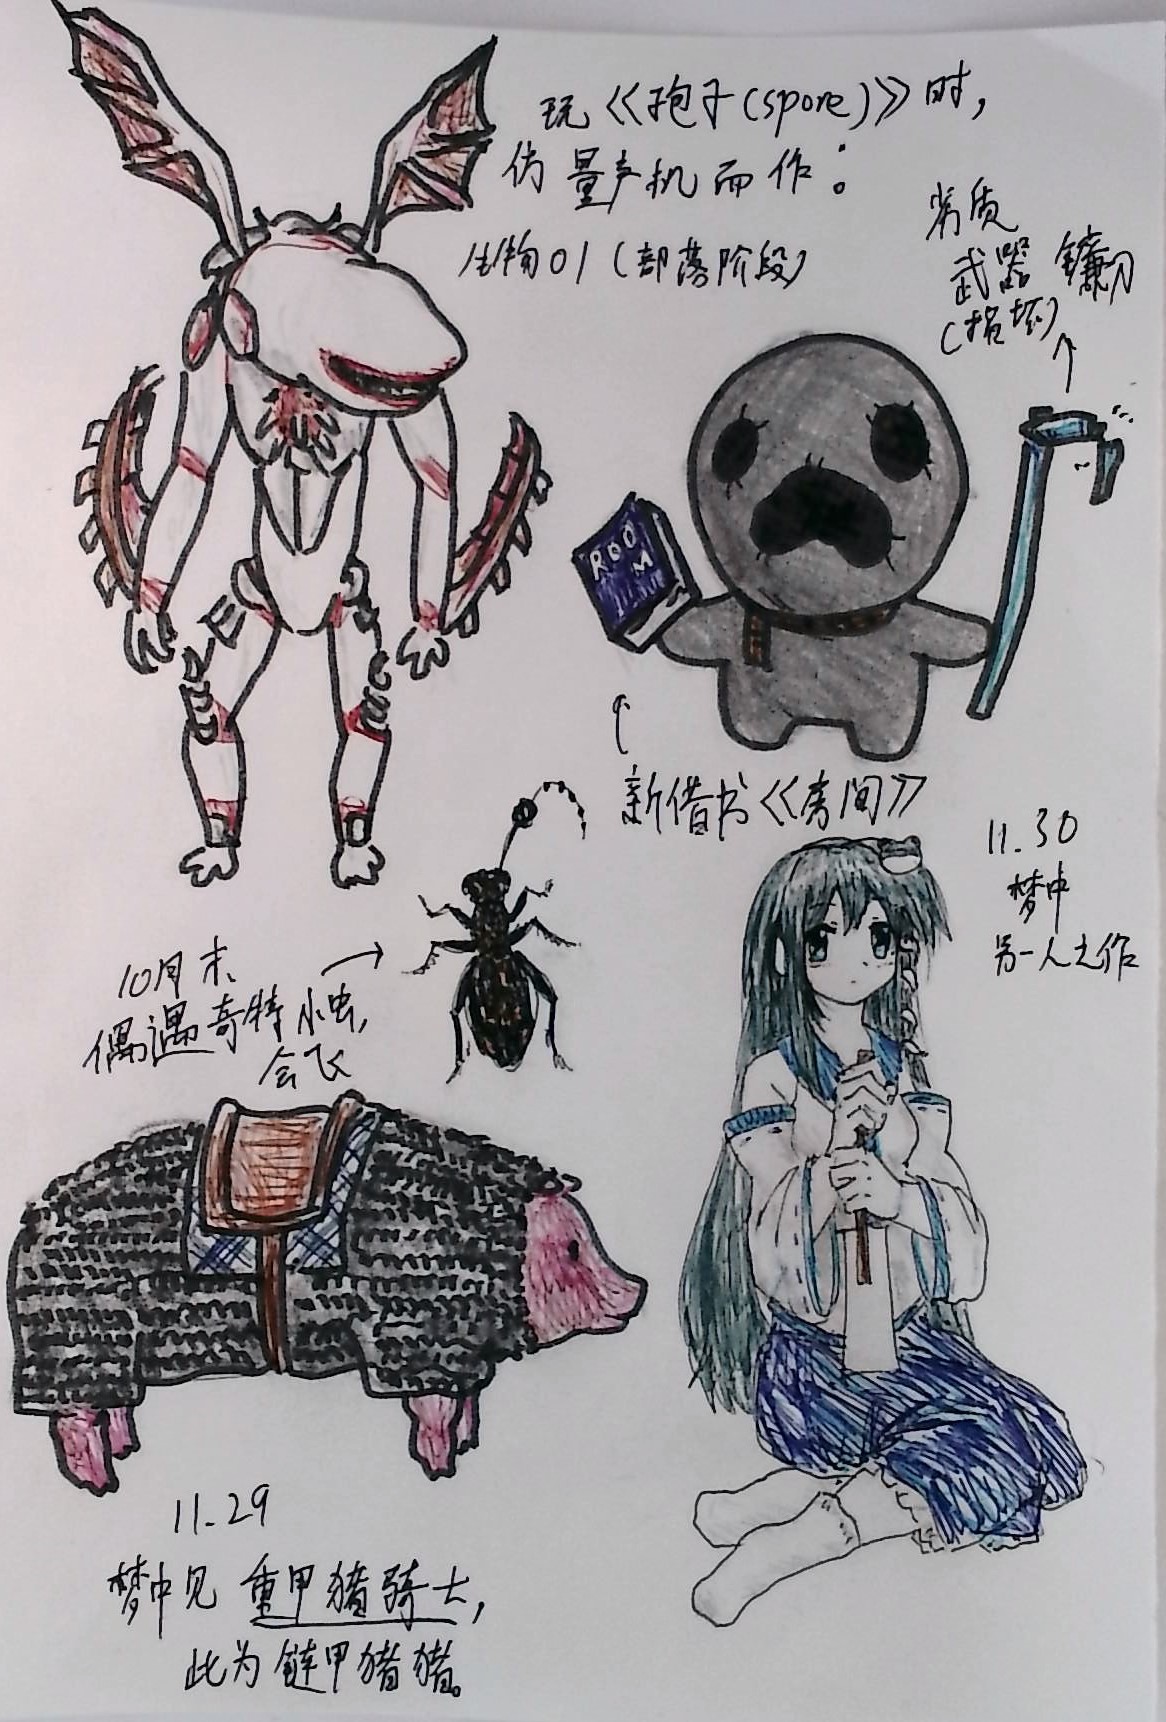 玩《孢子(spore)》时,
仿量产机而作：
生物01(部落阶段)
劣质
武器 镰刀
(损坏)
ROO
M
新借书《房间》
11.30
梦中
另一人之作
10月末、
偶遇奇特小虫,
会飞
11.29
梦中见 重甲猪骑士,
此为链甲猪猪。